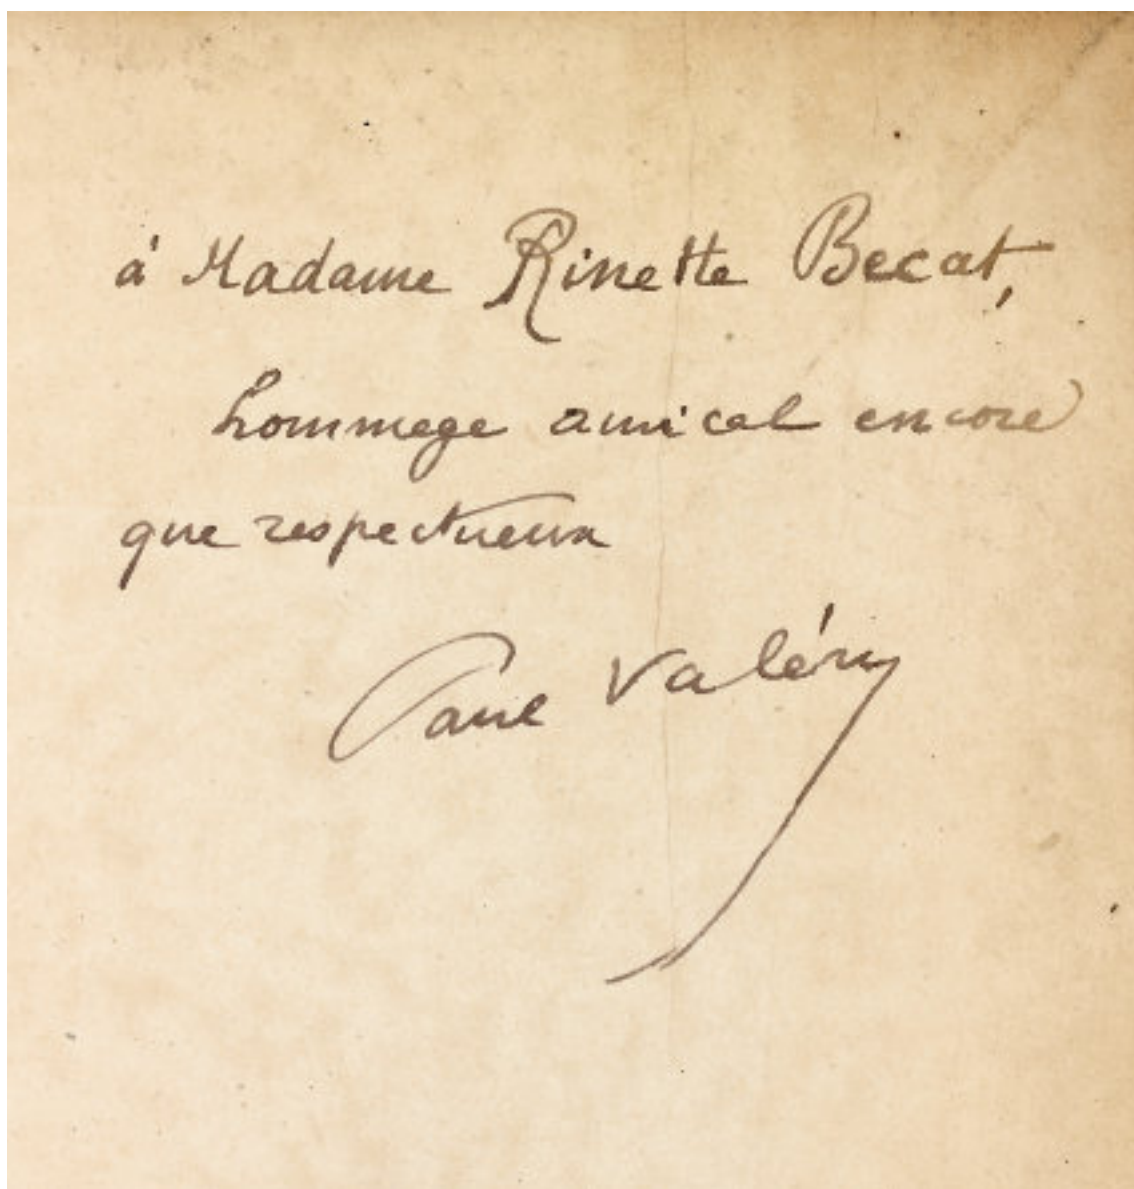 à Madame Rinette Becat,
hommage amical encore
que respectueux
Paul Valéry